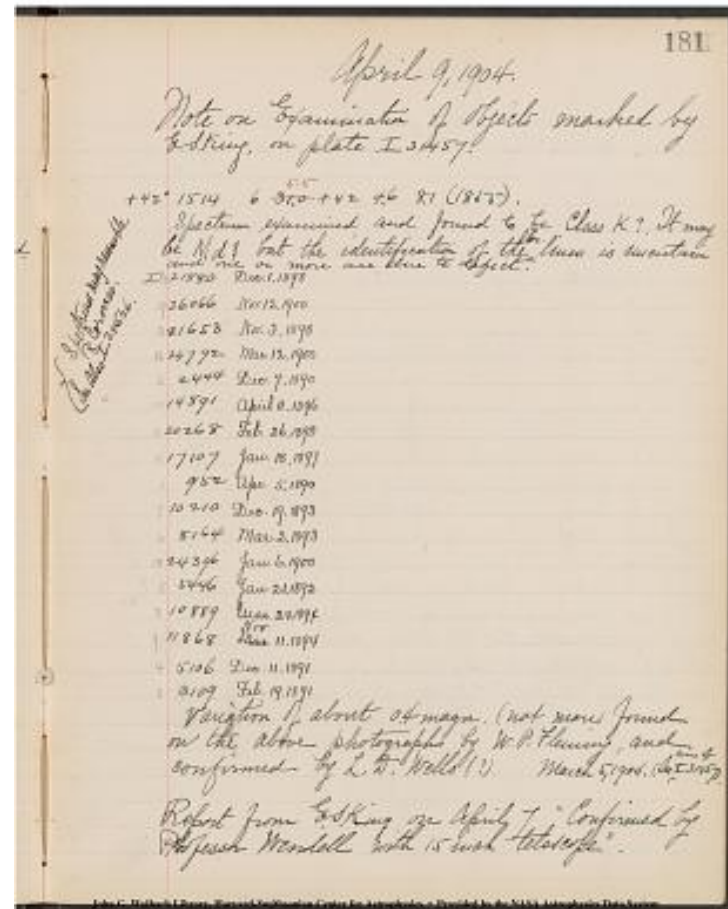 181
April 9, 1904.
Note on Examination of Objects marked by
E.S. King, on plate I 31457.
+42° 1514 6 +42 4.6 8.1 (1855).
Spectrum examined and found to be Class K?. It may
be but the identification of the lines is uncertain
and one or more are due to defect.
I 21880 Dec. 1, 1898
26066 Nov. 12, 1900
21653 Nov. 3, 1898
24792 Mar. 12, 1900
2444 Dec. 9, 1890
14891 April 8, 1896
20268 Feb. 26, 1898
17107 Jan. 18, 1897
952 Apr. 5, 1890
10210 Dec. 19, 1893
8164 Mar. 2, 1893
24396 Jan. 6, 1900
5446 Jan. 1892
10889 1894
11868 11, 1894
5106 Dec. 11, 1891
3109 Feb. 19, 1891
Variation of about 0.4 magn. (not more) found
on the above photographs by W.P. Fleming, and
confirmed by L.D. Wells (!). March 5, 1904.
Report from E.S. King on April 7 "Confirmed by
Professor Wendell with 15 inch telescope".
John G. Wolbach Library, Harvard-Smithsonian Center for Astrophysics • Provided by the NASA Astrophysics Data System